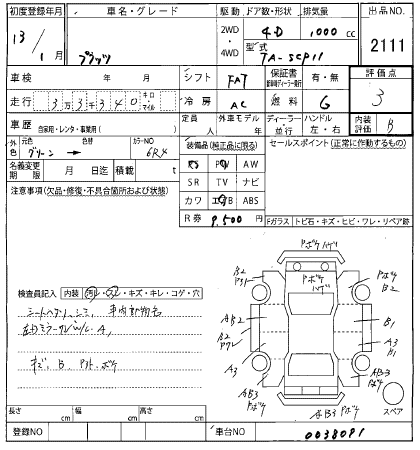 初度登録年月 車名・グレード 駆動 ドア数・形状 排気量 出品NO.
13/1月 プラッツ 2WD・4WD 4D 1,000cc 2111
型式 TA-SCP11
車検 年 月 シフト FAT 保証書 有・無 評価点
走行 33340 キロ・マイル 冷房 AC 燃料 G 3
車歴 自家用・レンタ・事業用( ) 定員 人 外車モデル 年 ディーラー・並行 ハンドル 左・右 内装評価 B
外色 元色 グリーン → 色替 カラーNO 6R4
装備品(純正品に限る) セールスポイント(正常に動作するもの)
名義変更期限 月 日迄 積載 t
PS PW AW
SR TV ナビ
カワ エアB ABS
注意事項(欠品・修復・不具合箇所および状態)
R券 9,500円
Fガラス トビ石・キズ・ヒビ・ワレ・リペア跡
検査員記入 内装 汚レ・スレ・キズ・キレ・コゲ・穴
シートヘタリ、シミ、車内
左右ミラー
キズ、B
Pボケ
Pボケ
B2
Pボケ
B2
AB2
B1
B2
A3
B1
A3
AB3
Pボケ
AB3
Pボケ
AB3 Pボケ
スペア
長さ cm 幅 cm 高さ cm
登録NO 車台NO 0038091